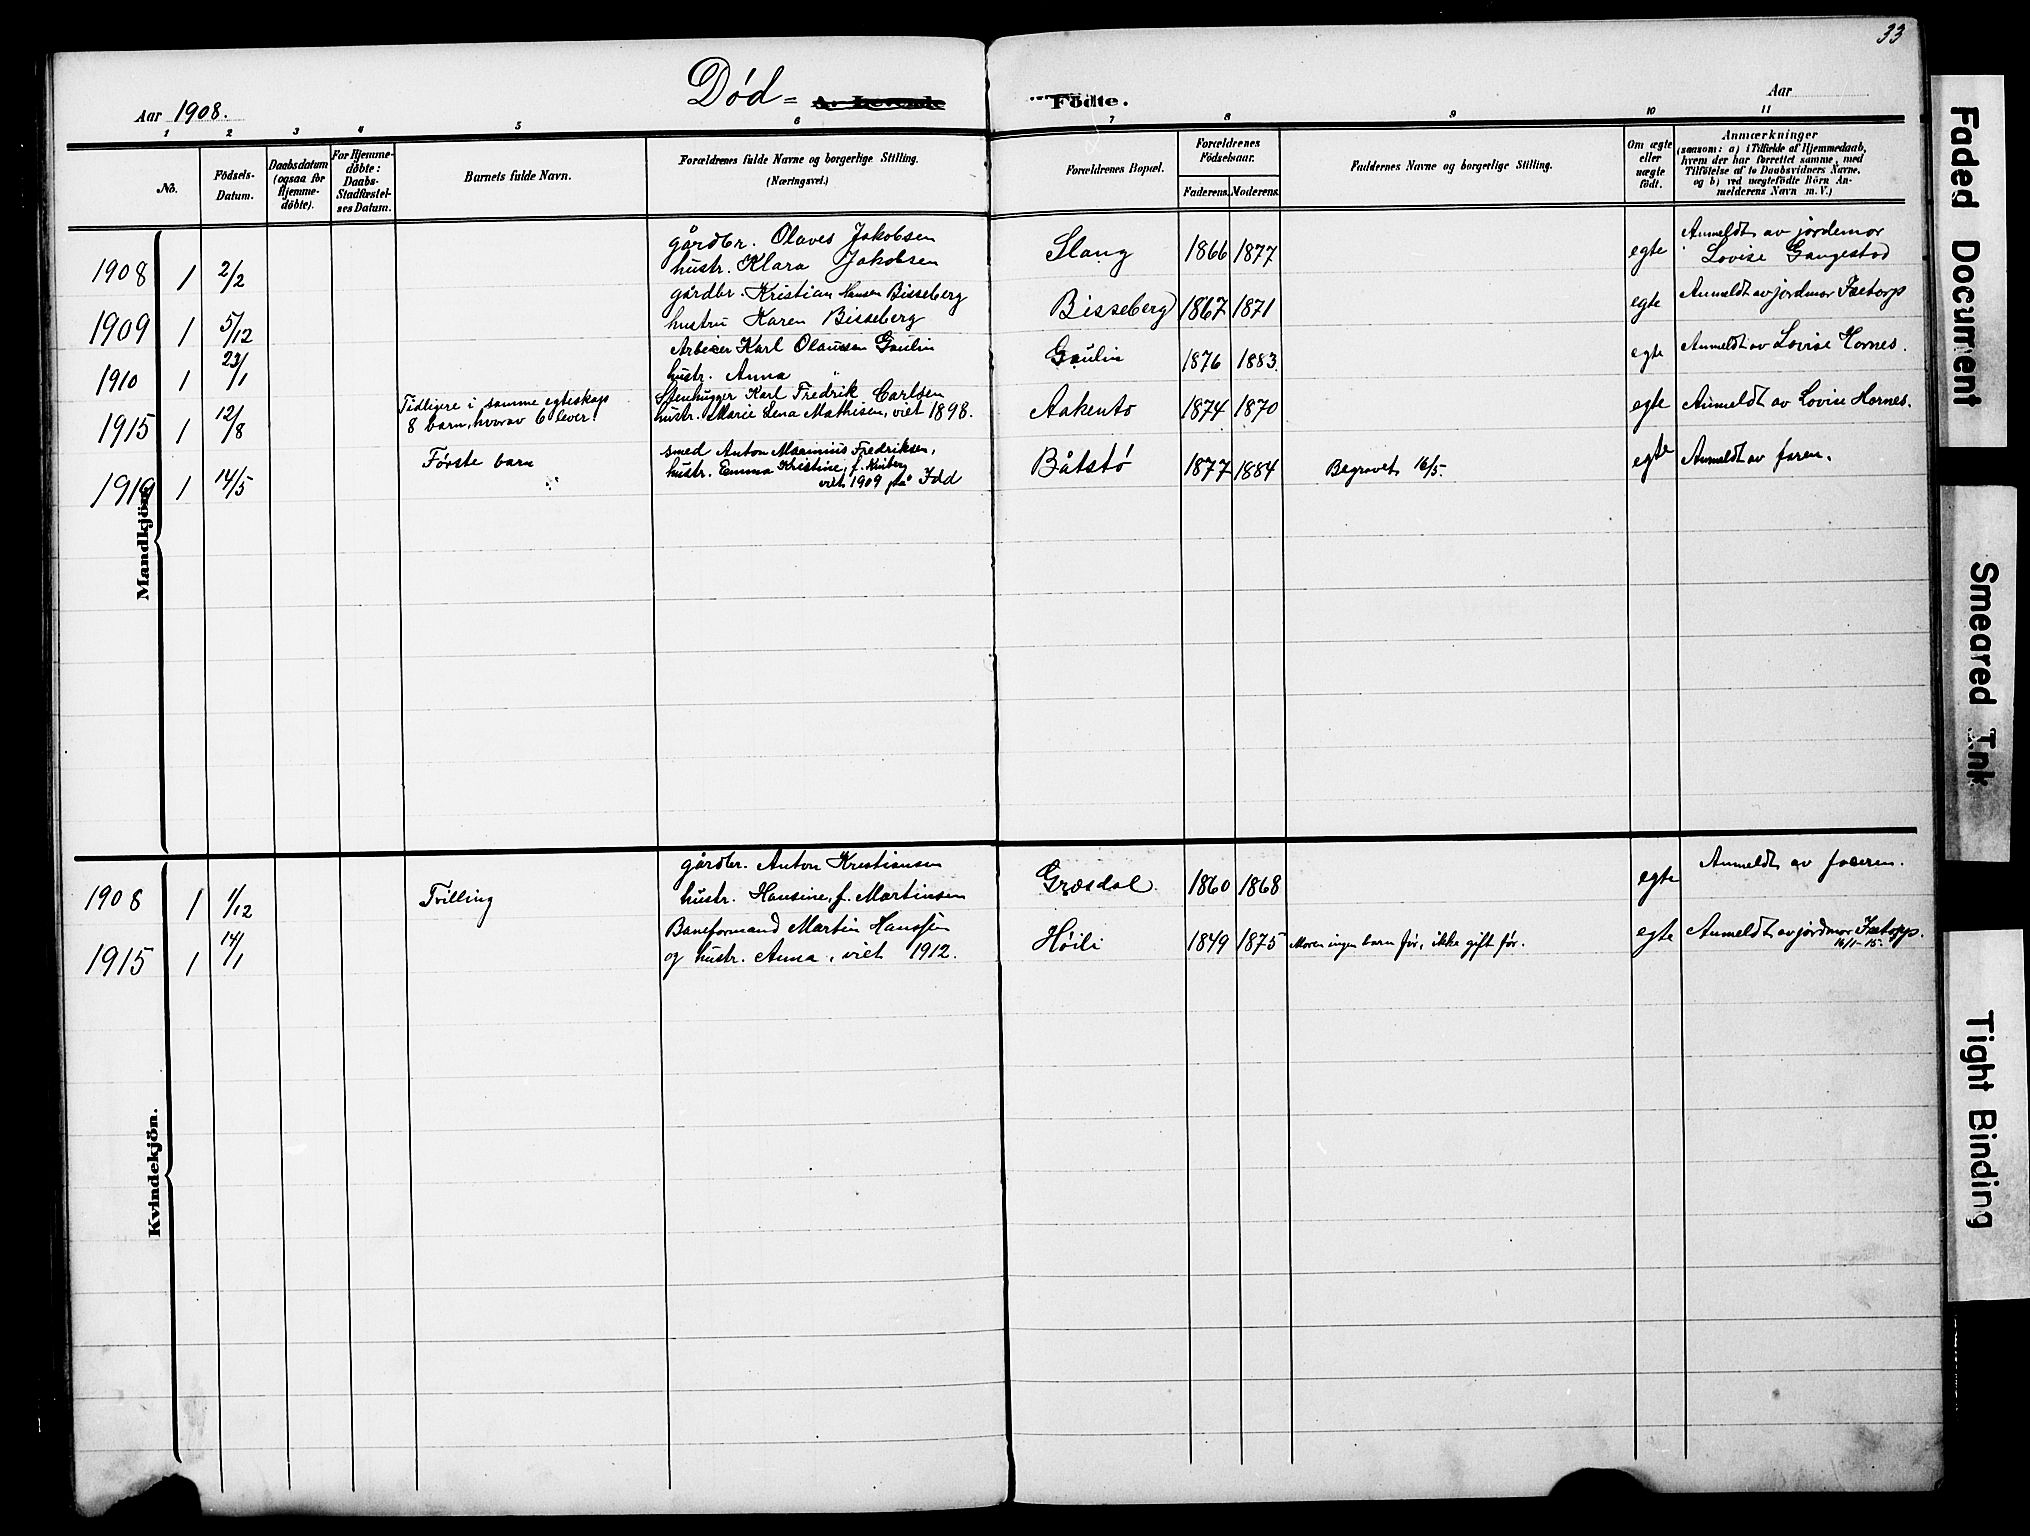 33
Død=
A. Levende Födte.
Aar 1908.
Aar
1 2 3 4 5 6 7 8 9 10 11
No.
Födsels-
Datum.
Daabsdatum
(ogsaa for
Hjemme-
döbte).
For Hjemme-
döbte:
Daabs-
Stadfæstel-
ses Datum.
Barnets fulde Navn.
Forældrenes fulde Navne og borgerlige Stilling.
(Næringsvei.)
Forældrenes Bopæl.
Forældrenes
Födselsaar.
Faderens. Moderens.
Faddernes Navne og borgerlige Stilling.
Om ægte
eller
uægte
födt.
Anmærkninger
(saasom: a) i Tilfælde af Hjemmedaab,
hvem der har forrettet samme, med
Tilföielse af to Daabsvidners Navne,
og b) ved uægtefödte Börn An-
melderens Navn m. V.)
Mandkjön.
1908 1 2/2
gårdbr. Olaves Jakobsen
hustr. Klara Jakobsen
Slang 1866 1877 egte
Anmeldt av jordemor
Lovise Gangestad
1909 1 5/12
gårdbr. Kristian Hansen Bisseberg
hustru Karen Bisseberg
Bisseberg 1867 1871 egte
Anmeldt av jordmor Isetorp
1910 1 23/1
Arbeier Karl Olaussen Gaulin
hustr. Anna
Gaulin 1876 1883 egte
Anmeldt av Lovise Hornes.
1915 1 12/8
Tidligere i samme egteskap
8 barn, hvorav 6 lever.
Stenhugger Karl Fredrik Carlsen
hustr. Marie Lena Mathisen, viet 1898.
Aakentø 1874 1870 egte
Anmeldt av Lovise Hornes.
1919 1 14/5
Første barn
smed Anton Marinius Fredriksen,
hustr. Emma Kristine, f.
viet 1909 på Idd
Båtstø 1877 1884 Begravet 16/5. egte
Anmeldt av faren.
Kvindekjön.
1908 1 1/12
Tvilling
gårdbr. Anton Kristiansen
hustr. Hansine, f. Martinsen
Græsdal. 1860 1868 egte
Anmeldt av faderen.
1915 1 14/1
Baneformand Martin Hanssen
og hustr. Anna, viet 1912.
Høili 1849 1875 Moren ingen barn før, ikke gift før. egte
Anmeldt av jordmor Isetorp.
16/1-15.
Faded Document
Smeared Ink
Tight Binding